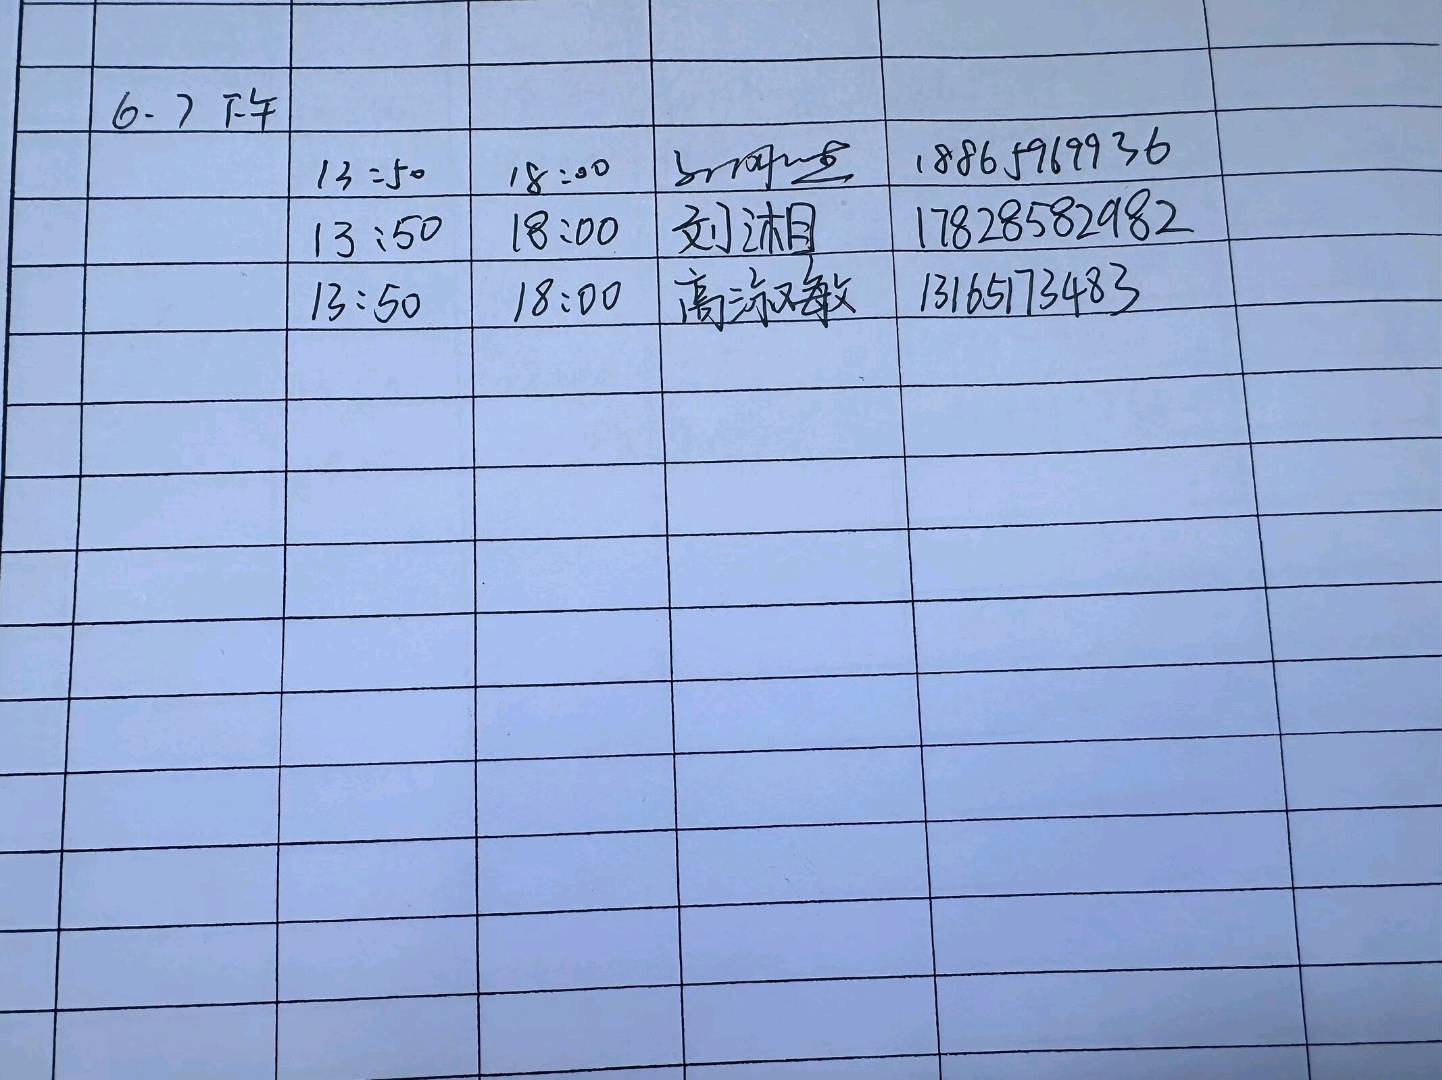 6.7 下午
13:50 18:00 18865969936
13:50 18:00 刘沐目 17828582982
13:50 18:00 高淑敏 13165173483